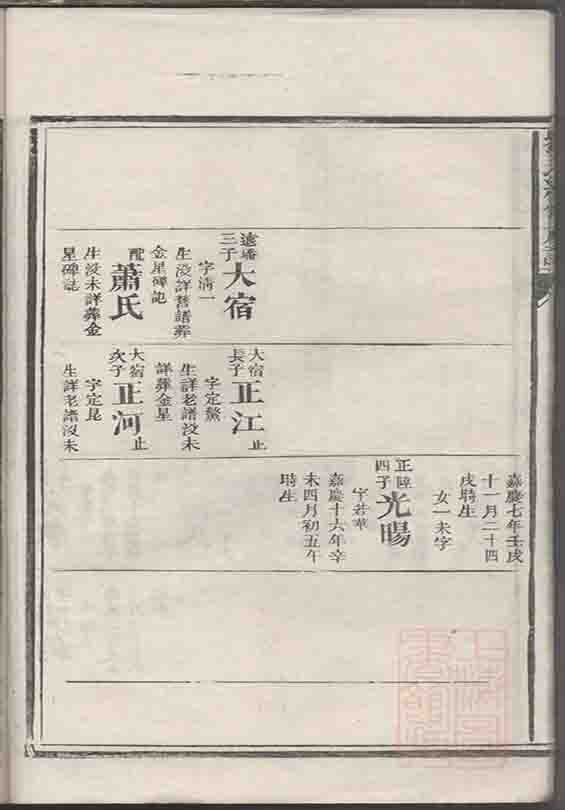 遠墦三子
大宿
字清一
生沒詳舊譜葬
金星碑記
配
蕭氏
生沒未詳葬金
星碑誌
大宿長子
正江
止
字定鰲
生詳老譜沒未
詳葬金星
大宿次子
正河
止
字定昆
生詳老譜沒未
嘉慶七年壬戌
十一月二十四
戌時生
女一未字
四子
光暘
字若華
嘉慶十六年辛
未四月初五午
時生